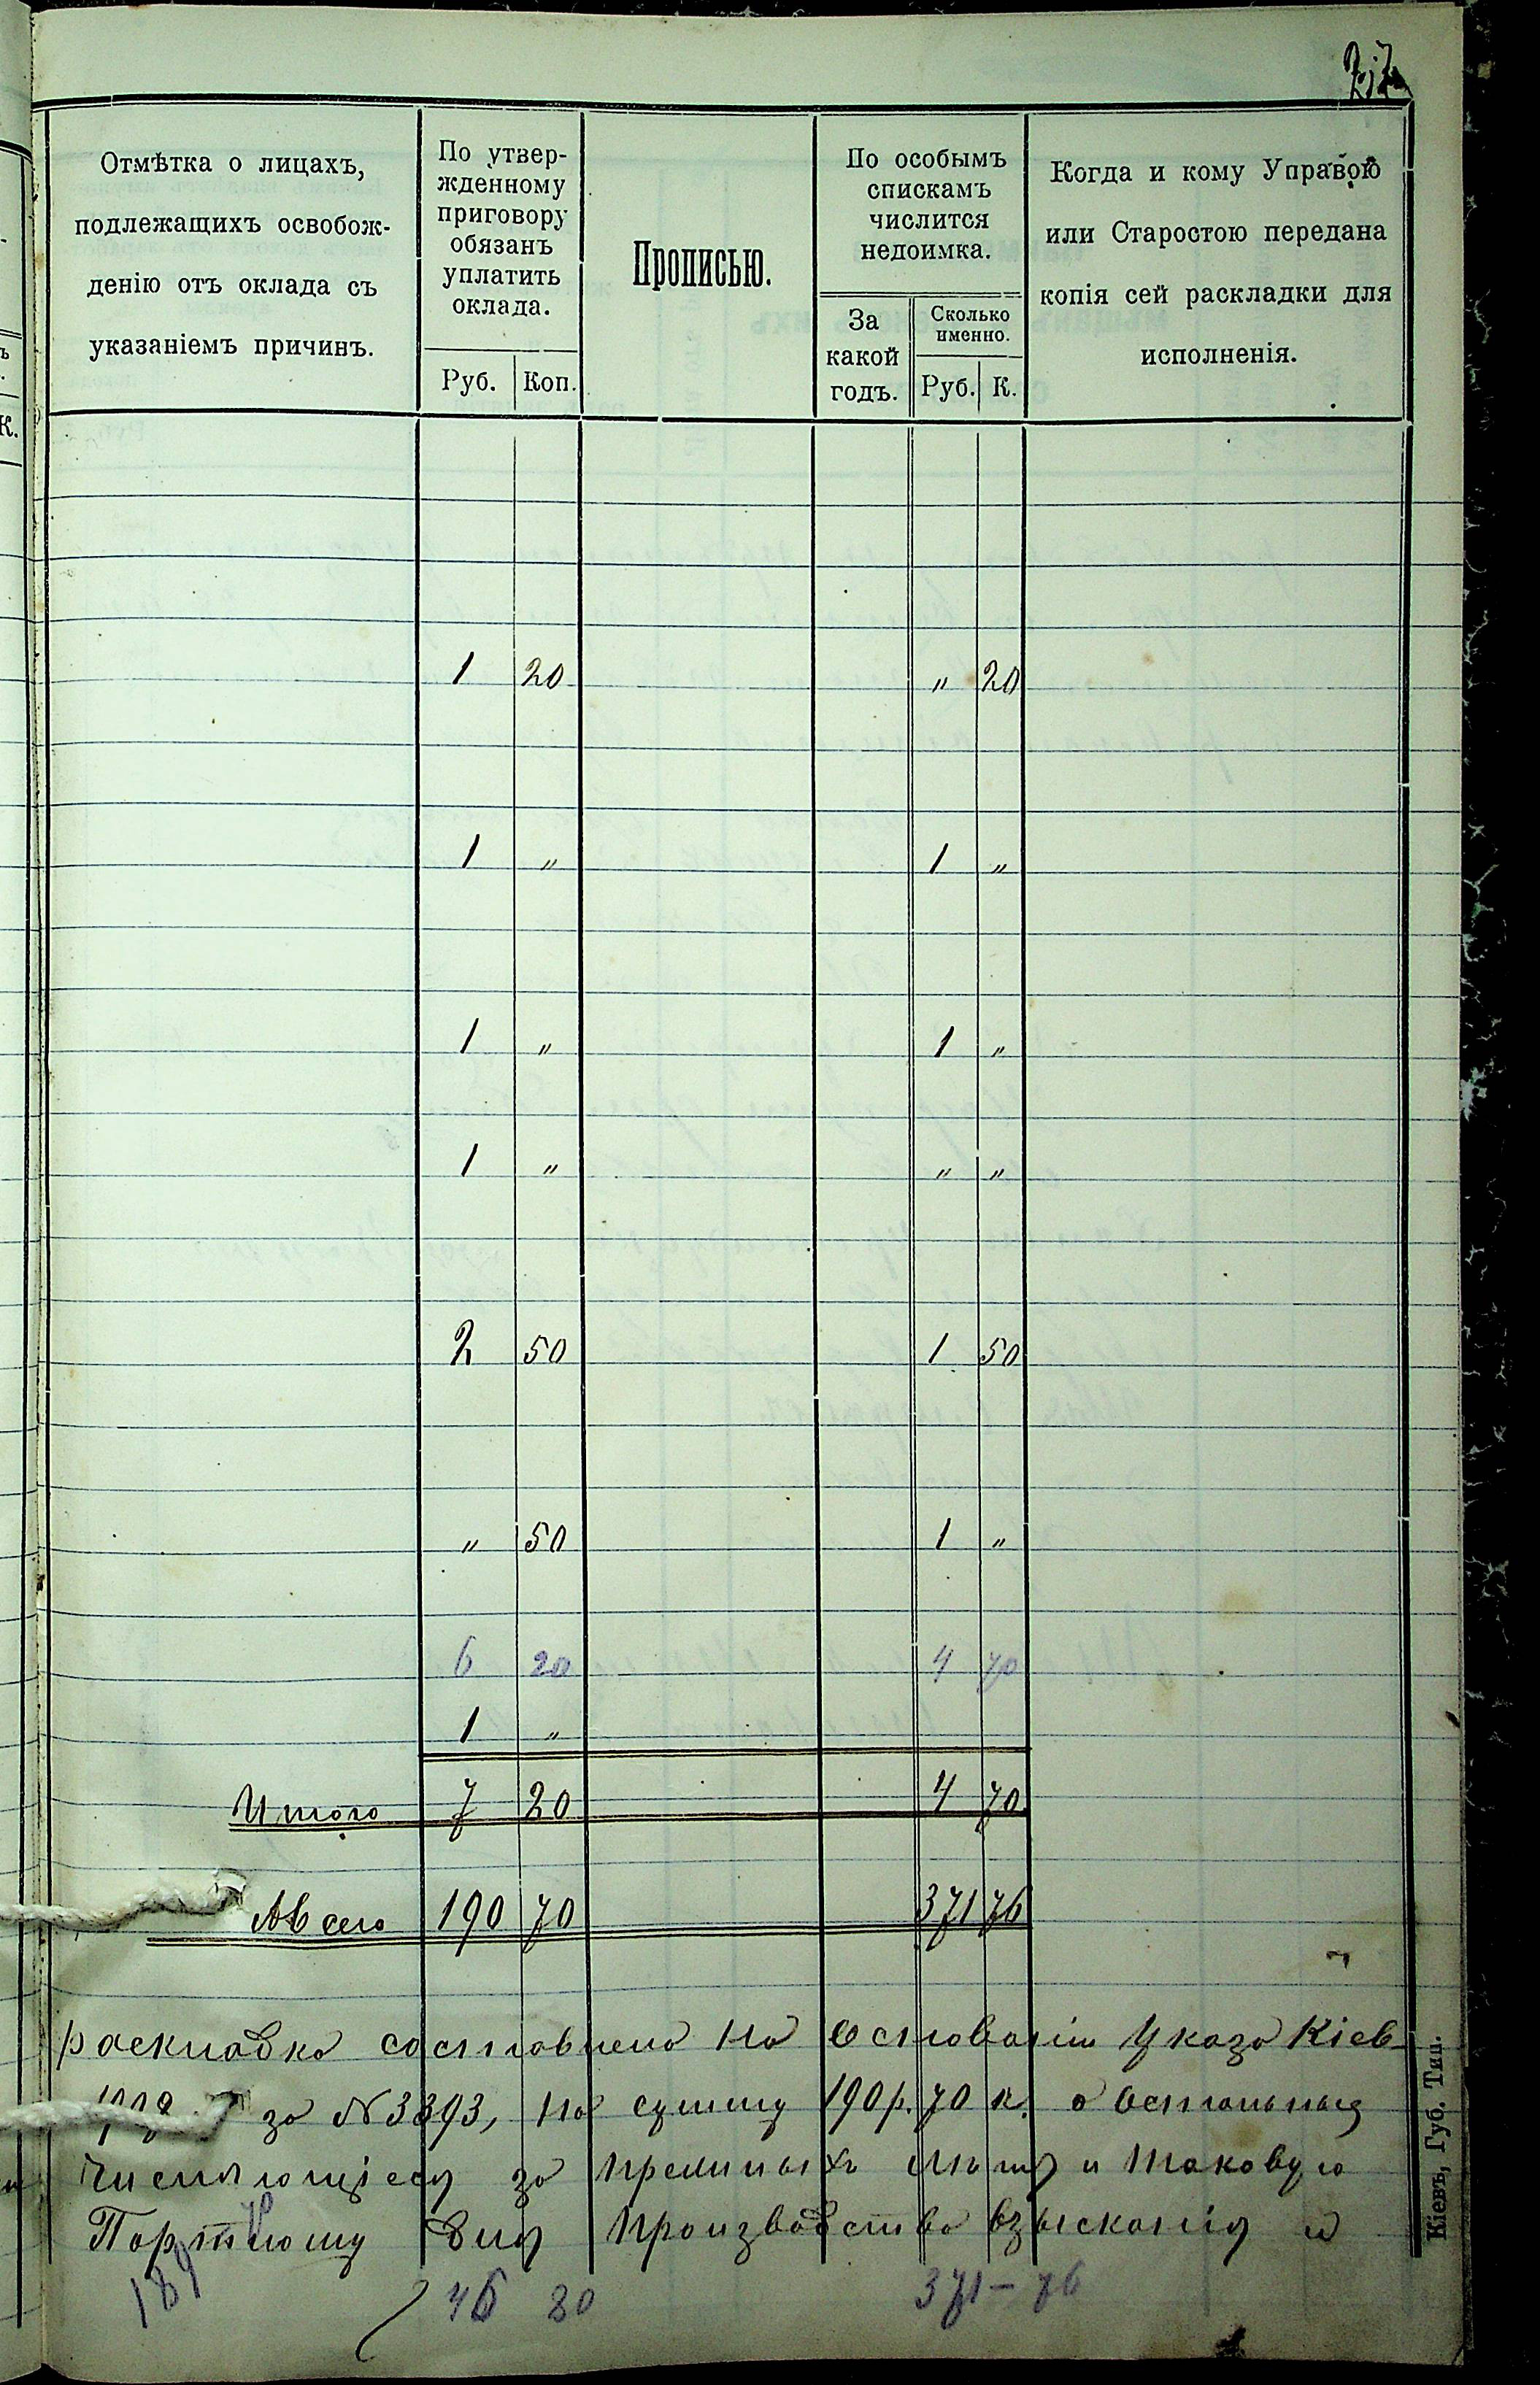 Отмѣтка о лицахъ,
подлежащихъ освобож-
денію отъ оклада съ
указаніемъ причинъ.
По утвер-
жденному
приговору
обязанъ
уплатить
оклада.
Руб. Коп.
Прописью.
По особымъ
спискамъ
числится
недоимка.
За
какой
годъ.
Сколько
именно.
Руб. К.
Когда и кому Управою
или Старостою передана
копія сей раскладки для
исполненія.
К.
1 20 " 20
1 " 1 "
1 " 1 "
1 " " "
2 50 1 50
" 50 1 "
6 20 4 70
1 "
Итого 7 20 4 70
А всего 190 70 371 76
раскладка составлена на основаніи Указа Кіев-
за № 3393, на сумму 190 р. 70 к. а остальныя
числящіеся за прошлых и таковую
для производства взысканія и
371-76
Кіевъ, Губ. Тип.